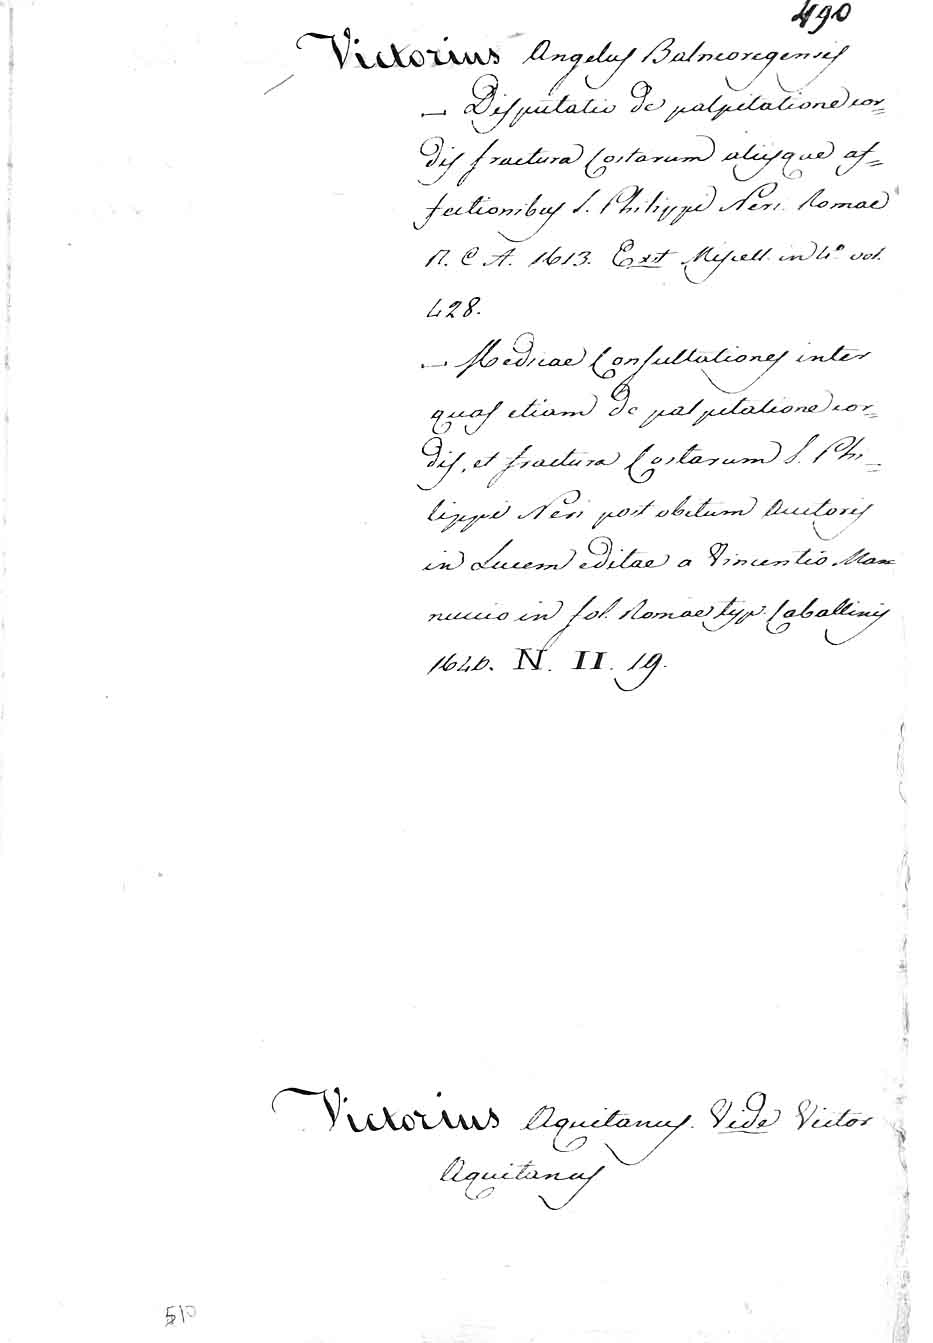 490
Victorius Angelus Balneoregensis
— Disputatio de palpitatione cor=
dis fractura Costarum aliisque af=
fectionibus S. Philippi Neri. Romae
R. C. A. 1613. Ext Miscell. in 4º vol.
428.
— Medicae Consultationes inter
quas etiam de palpitatione cor=
dis, et fractura Costarum S. Phi=
lippi Neri post obitum Auctoris
in Lucem editae a Vincentio Man
nuccio in fol. Romae typ. Caballinis
1640. N. II. 19.
Victorius Aquitanus. Vide Victor
Aquitanus
510